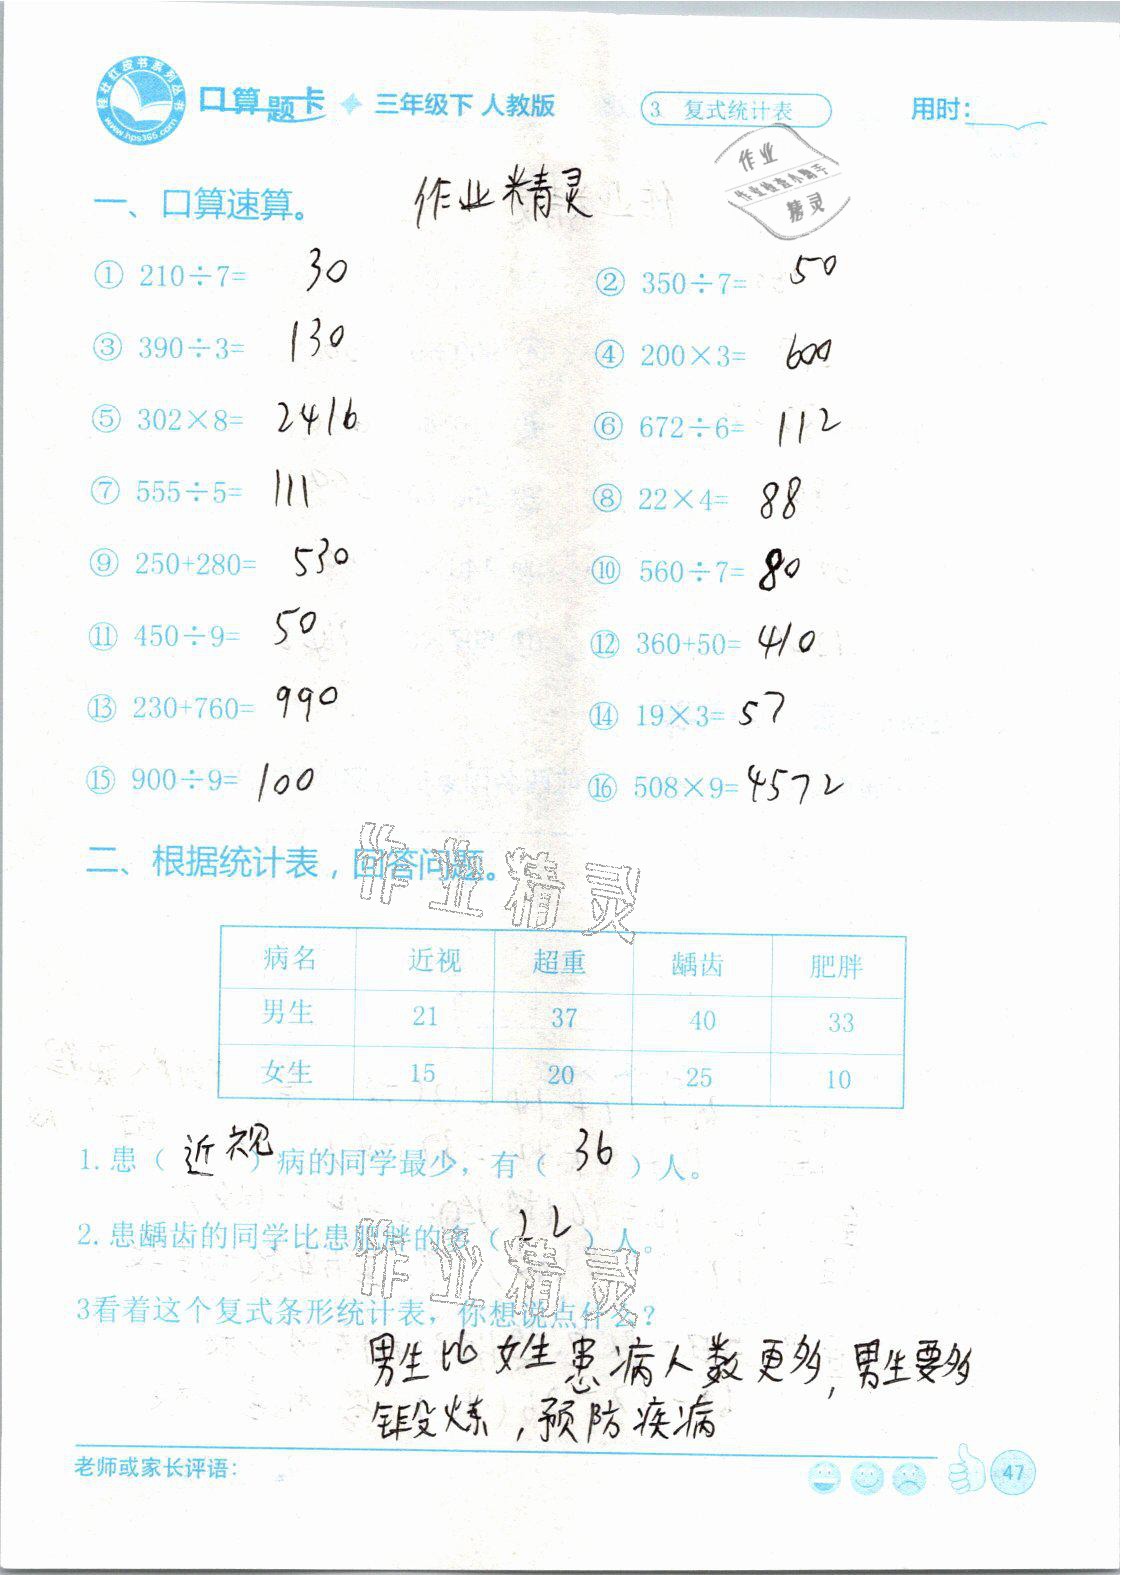 桂壮红皮书系列丛书
www.hps365.com
口算题卡 三年级下 人教版
3 复式统计表
用时:
作业
作业检查小助手
精灵
一、口算速算。 作业精灵
① 210÷7= 30 ② 350÷7= 50
③ 390÷3= 130 ④ 200×3= 600
⑤ 302×8= 2416 ⑥ 672÷6= 112
⑦ 555÷5= 111 ⑧ 22×4= 88
⑨ 250+280= 530 ⑩ 560÷7= 80
⑪ 450÷9= 50 ⑫ 360+50= 410
⑬ 230+760= 990 ⑭ 19×3= 57
⑮ 900÷9= 100 ⑯ 508×9= 4572
二、根据统计表，回答问题。
作业精灵
病名 近视 超重 龋齿 肥胖
男生 21 37 40 33
女生 15 20 25 10
1.患（近视）病的同学最少，有（36）人。
2.患龋齿的同学比患肥胖的多（22）人。
作业精灵
3看着这个复式条形统计表，你想说点什么？
男生比女生患病人数更多，男生要多
锻炼，预防疾病
老师或家长评语：
47